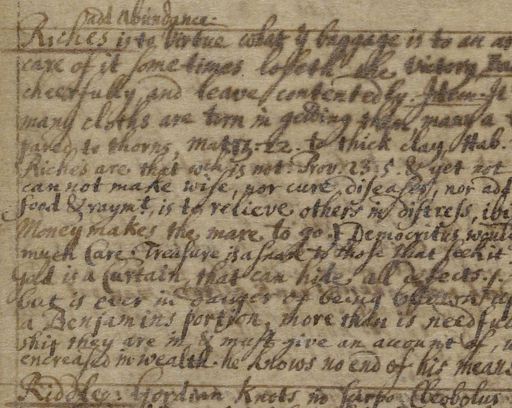 add Abundance.
Riches is to virtue what ye baggage is to an ar
care of it sometimes loseth the victory
cheerfully and leave contentedly. Item. It
many cloths are torn in getting them, many a
pared to thorns, Mat. 13. 22. to thick clay Hab.
Riches are that wch is not. Prov. 23. 5. & yet not
can not make wise, nor cure diseases, nor add
food & raymt, is to relieve others in distress,
Money makes the mare to go. Democritus would
much Care. Treasure is a snare to those that seek it
is a Curtain, that can hide all defects.
but is ever in danger of being
a Benjamins portion, more than is needful
ship they are in, & must give an account of,
encreased in wealth. he knows no end of his means
Riddles: Gordian Knots Cleobolus